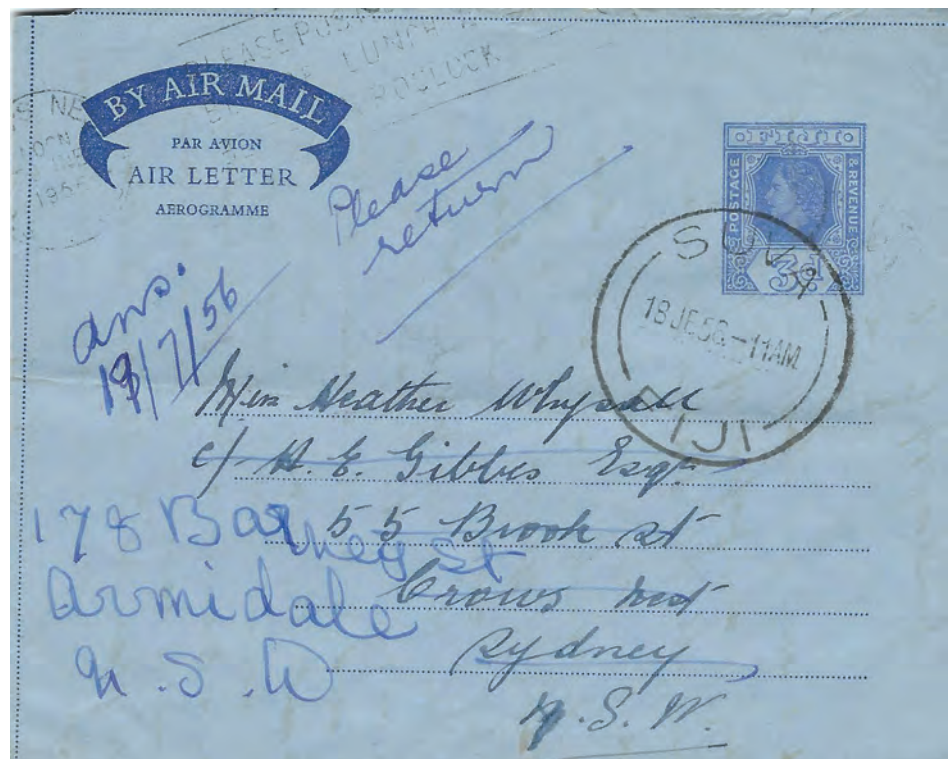 PLEASE POST
BEFORE LUNCH
O'CLOCK
NE
1956
BY AIR MAIL
PAR AVION
AIR LETTER
AEROGRAMME
Please
return
FIJI
POSTAGE
& REVENUE
3d
SUVA
18 JE 56 - 11 AM
FIJI
ans.
19/7/56
Miss Heather Whypall
c/- H. E. Gibbes Esq.
55 Brook St
Crows Nest
Sydney
N.S.W.
178 Barney St
Armidale
N.S.W